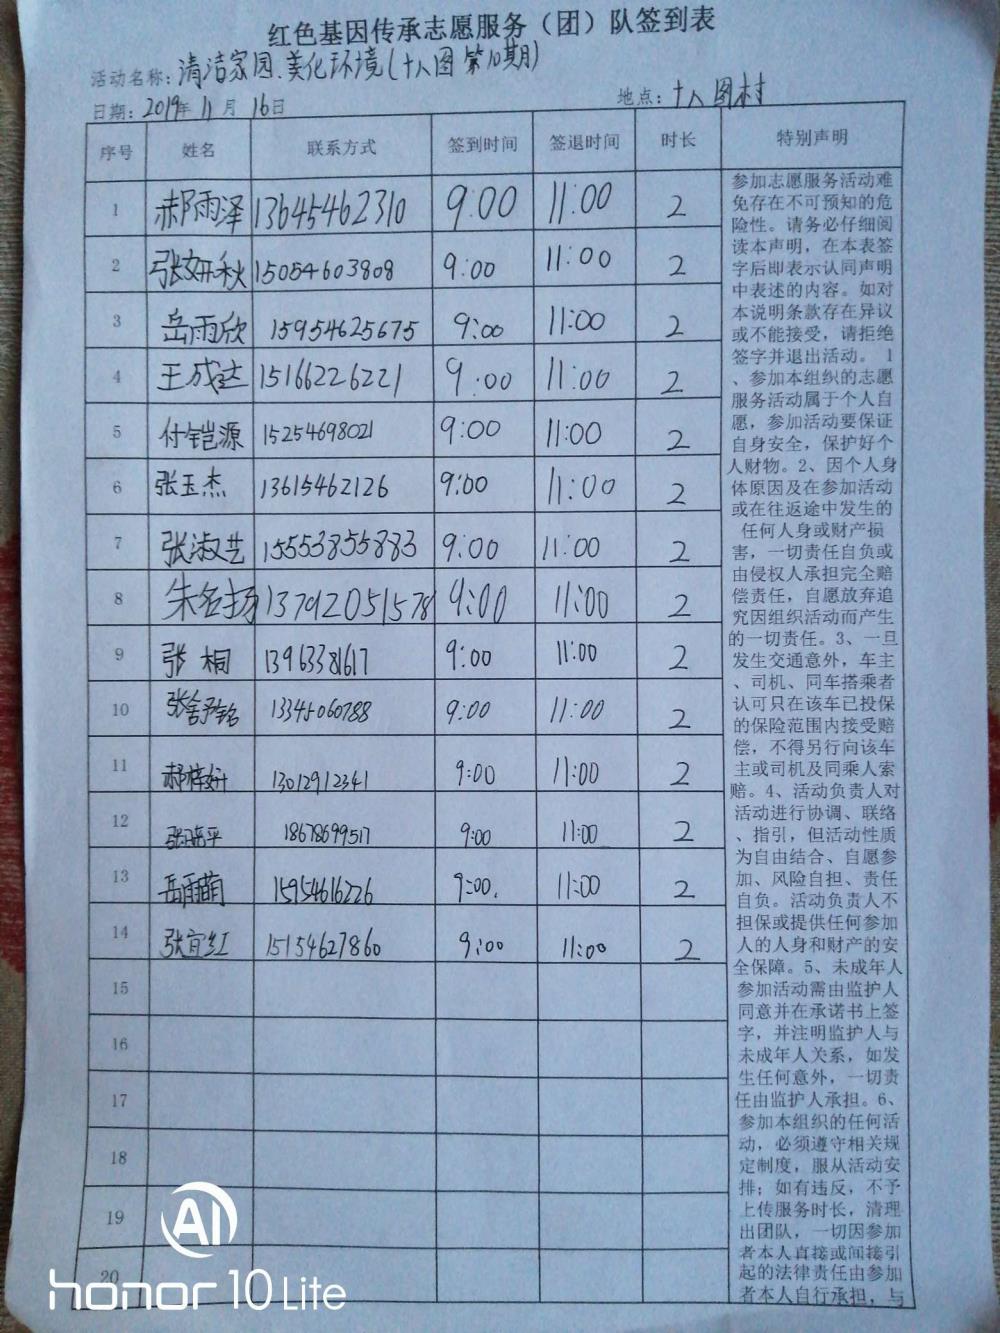 红色基因传承志愿服务（团）队签到表
活动名称：清洁家园、美化环境（十八图第10期）
日期：2019年11月16日 地点：十八图村
序号 姓名 联系方式 签到时间 签退时间 时长 特别声明
1 郝雨泽 13645462310 9:00 11:00 2
2 张妍秋 15054603808 9:00 11:00 2
3 岳雨欣 15954625675 9:00 11:00 2
4 王成达 15166226221 9:00 11:00 2
5 付铠源 15254698021 9:00 11:00 2
6 张玉杰 13615462126 9:00 11:00 2
7 张淑艺 15553855883 9:00 11:00 2
8 朱名扬 13792051578 9:00 11:00 2
9 张桐 13963381617 9:00 11:00 2
10 张舒铭 13345060788 9:00 11:00 2
11 郝梓妍 13012912341 9:00 11:00 2
12 张晓平 18678699517 9:00 11:00 2
13 岳雨萌 15954616226 9:00. 11:00 2
14 张宜红 15154627860 9:00 11:00 2
15
16
17
18
19
20
参加志愿服务活动难
免存在不可预知的危
险性。请务必仔细阅
读本声明，在本表签
字后即表示认同声明
中表述的内容。如对
本说明条款存在异议
或不能接受，请拒绝
签字并退出活动。 1
、参加本组织的志愿
服务活动属于个人自
愿，参加活动要保证
自身安全，保护好个
人财物。2、因个人身
体原因及在参加活动
或在往返途中发生的
任何人身或财产损
害，一切责任自负或
由侵权人承担完全赔
偿责任，自愿放弃追
究因组织活动而产生
的一切责任。3、一旦
发生交通意外，车主
、司机、同车搭乘者
认可只在该车已投保
的保险范围内接受赔
偿，不得另行向该车
主或司机及同乘人索
赔。4、活动负责人对
活动进行协调、联络
、指引，但活动性质
为自由结合、自愿参
加、风险自担、责任
自负。活动负责人不
担保或提供任何参加
人的人身和财产的安
全保障。5、未成年人
参加活动需由监护人
同意并在承诺书上签
字，并注明监护人与
未成年人关系，如发
生任何意外，一切责
任由监护人承担。6、
参加本组织的任何活
动，必须遵守相关规
定制度，服从活动安
排；如有违反，不予
上传服务时长，清理
出团队，一切因参加
者本人直接或间接引
起的法律责任由参加
者本人自行承担，与
AI
honor 10 Lite